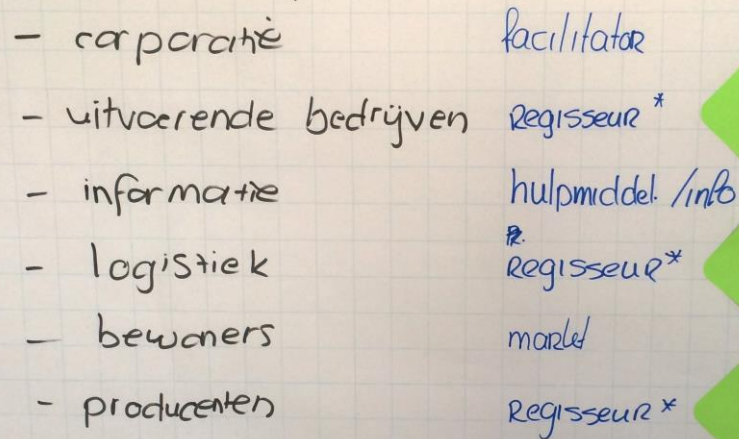 - corporatie facilitator
- uitvoerende bedrijven Regisseur *
- informatie hulpmiddel. /info
- logistiek Regisseur*
- bewoners markt
- producenten Regisseur *